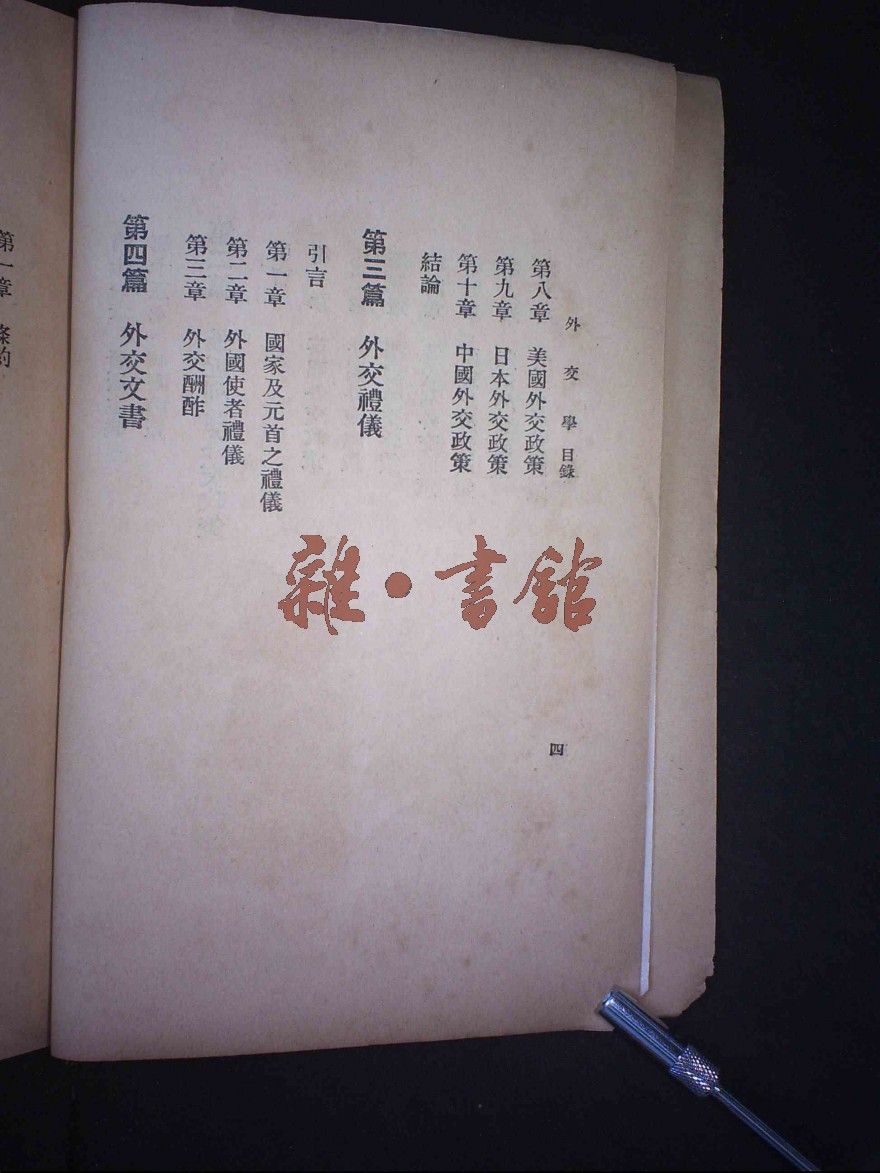 外交學 目錄
第八章 美國外交政策
第九章 日本外交政策
第十章 中國外交政策
結論
第三篇 外交禮儀
引言
第一章 國家及元首之禮儀
第二章 外國使者禮儀
第三章 外交酬酢
第四篇 外交文書
四
第一章 條約
雜·書館